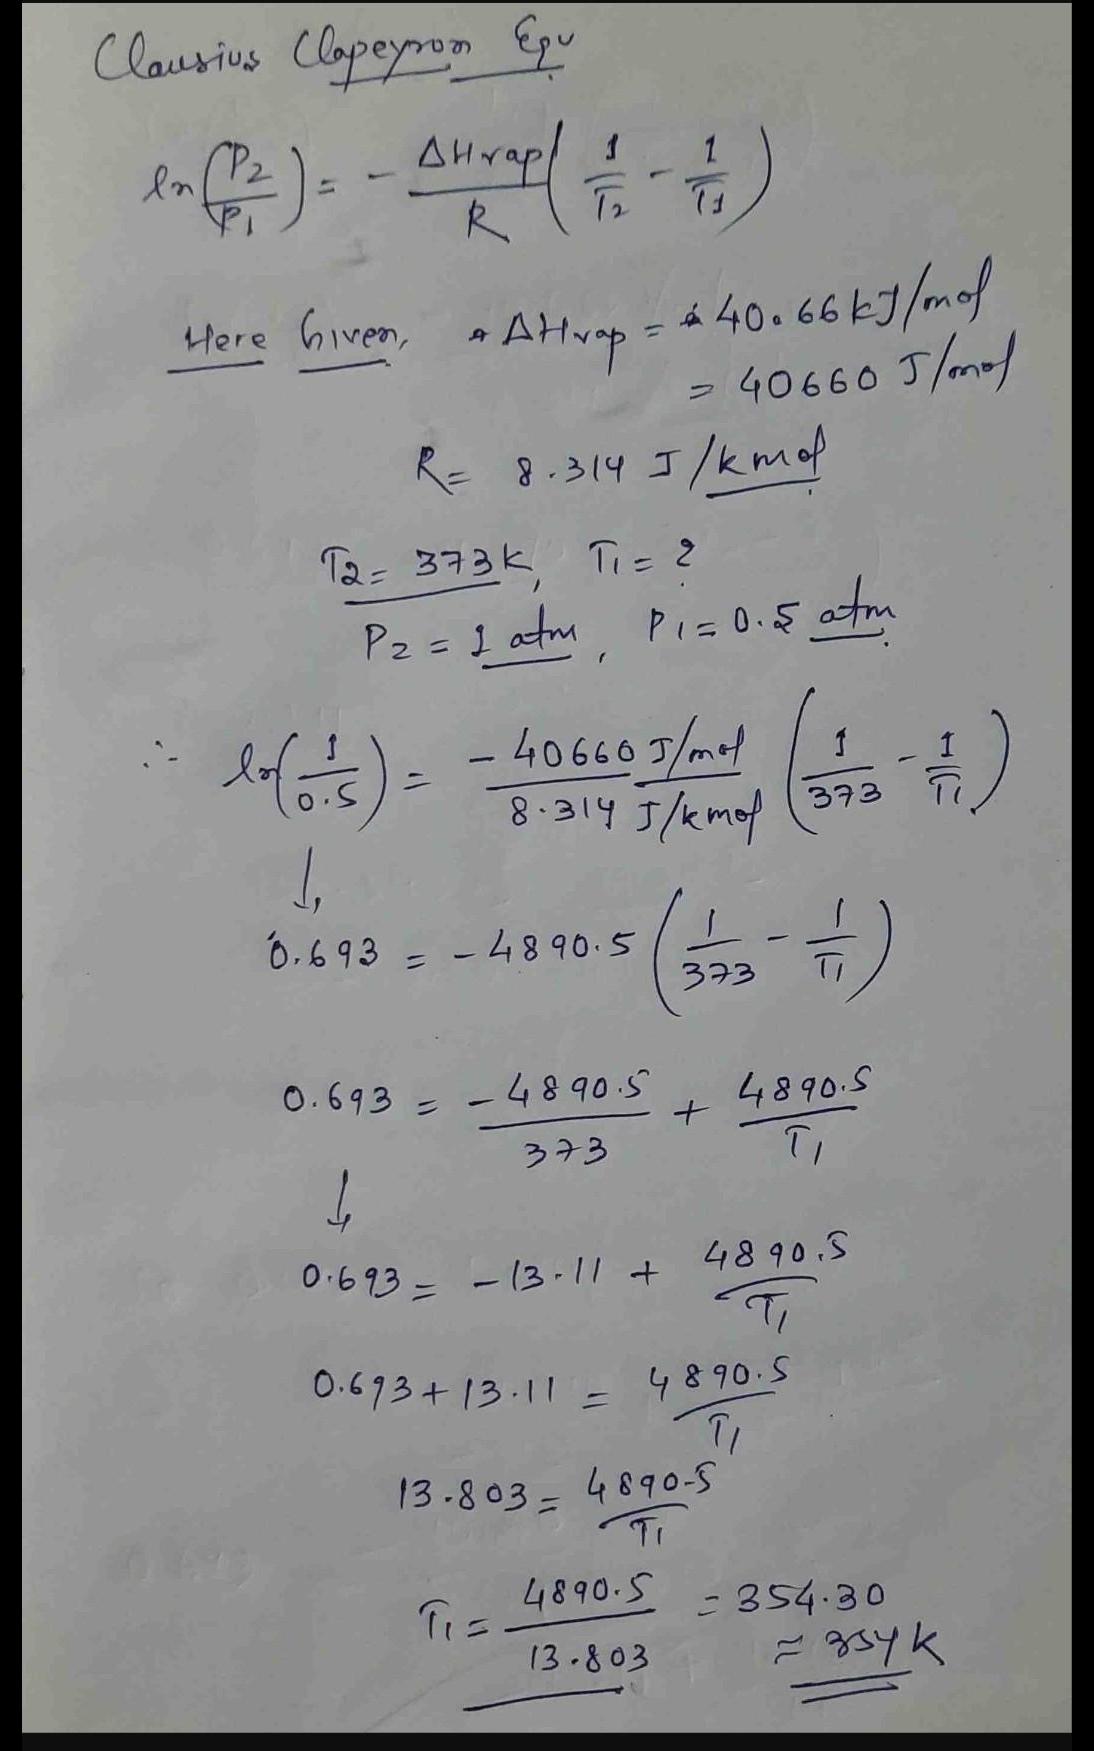 Clausius Clapeyron Equ
ln(P2/P1) = - ΔHvap/R (1/T2 - 1/T1)
Here Given, ΔHvap = 40.66 kJ/mol
= 40660 J/mol
R = 8.314 J/kmol
T2 = 373k, T1 = ?
P2 = 1 atm, P1 = 0.5 atm.
∴ ln(1/0.5) = - 40660 J/mol / 8.314 J/kmol (1/373 - 1/T1)
↓
0.693 = - 4890.5 (1/373 - 1/T1)
0.693 = - 4890.5/373 + 4890.5/T1
↓
0.693 = - 13.11 + 4890.5/T1
0.693 + 13.11 = 4890.5/T1
13.803 = 4890.5/T1
T1 = 4890.5/13.803 = 354.30
≈ 354 k